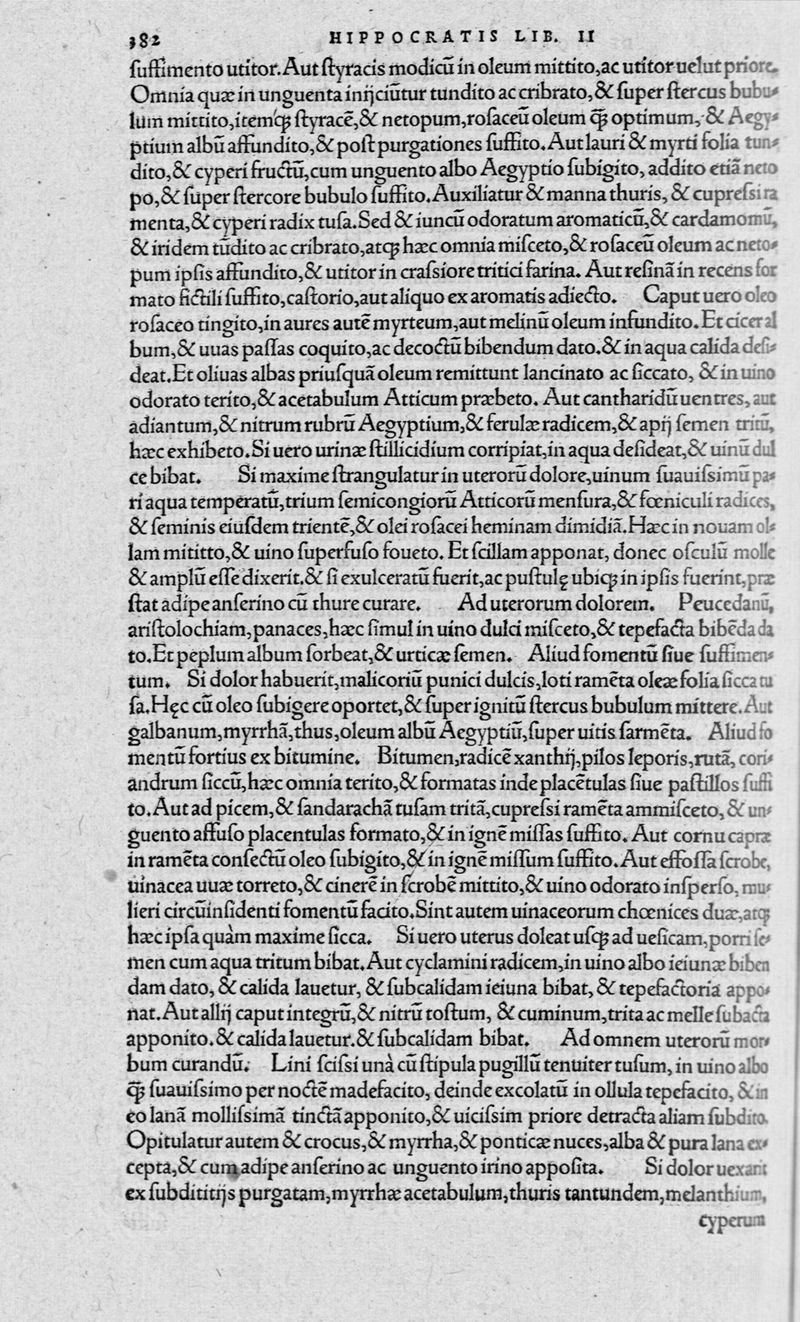 382 HIPPOCRATIS LIB. II
ſuffimento utitor. Aut ſtyracis modicũ in oleum mittito, ac utitor uelut priore.
Omnia quæ in unguenta inijciũtur tundito ac cribrato, & ſuper ſtercus bubu-
lum mittito, itemq́ꝫ ſtyracẽ, & netopum, roſaceũ oleum q̃ꝫ optimum, & Aegy-
ptium albũ affundito, & poſt purgationes ſuffito. Aut lauri & myrti folia tun-
dito, & cyperi fructũ, cum unguento albo Aegyptio ſubigito, addito etiã neto
po, & ſuper ſtercore bubulo ſuffito. Auxiliatur & manna thuris, & cupreſsi ra
menta, & cyperi radix tuſa. Sed & iuncũ odoratum aromaticũ, & cardamomũ,
& iridem tũdito ac cribrato, atqꝫ hæc omnia miſceto, & roſaceũ oleum ac neto-
pum ipſis affundito, & utitor in craſsiore tritici farina. Aut reſinã in recens for
mato fictili ſuffito, caſtorio, aut aliquo ex aromatis adiecto. Caput uero oleo
roſaceo tingito, in aures autẽ myrteum, aut melinũ oleum infundito. Et cicer al
bum, & uuas paſſas coquito, ac decoctũ bibendum dato. & in aqua calida deſi-
deat. Et oliuas albas priuſquã oleum remittunt lancinato ac ſiccato, & in uino
odorato terito, & acetabulum Atticum præbeto. Aut cantharidũ uentres, aut
adiantum, & nitrum rubrũ Aegyptium, & ferulæ radicem, & apij ſemen tritũ,
hæc exhibeto. Si uero urinæ ſtillicidium corripiat, in aqua deſideat, & uinũ dul
ce bibat. Si maxime ſtrangulatur in uterorũ dolore, uinum ſuauiſsimũ pa-
ri aqua temperatũ, trium ſemicongiorũ Atticorũ menſura, & fœniculi radices,
& ſeminis eiuſdem trientẽ, & olei roſacei heminam dimidiã. Hæc in nouam ol-
lam mititto, & uino ſuperfuſo foueto. Et ſcillam apponat, donec oſculũ molle
& amplũ eſſe dixerit. & ſi exulceratũ fuerit, ac puſtulę ubiqꝫ in ipſis fuerint, præ
ſtat adipe anſerino cũ thure curare. Ad uterorum dolorem. Peucedanũ,
ariſtolochiam, panaces, hæc ſimul in uino dulci miſceto, & tepefacta bibẽda da
to. Et peplum album ſorbeat, & urticæ ſemen. Aliud fomentũ ſiue ſuffimen-
tum. Si dolor habuerit, malicoriũ punici dulcis, loti ramẽta oleæ folia ſicca tu
ſa. Hęc cũ oleo ſubigere oportet, & ſuper ignitũ ſtercus bubulum mittere. Aut
galbanum, myrrhã, thus, oleum albũ Aegyptiũ, ſuper uitis ſarmẽta. Aliud fo
mentũ fortius ex bitumine. Bitumen, radicẽ xanthij, pilos leporis, rutã, cori-
andrum ſiccũ, hæc omnia terito, & formatas inde placẽtulas ſiue paſtillos ſuffi
to. Aut ad picem, & ſandarachã tuſam tritã, cupreſsi ramẽta ammiſceto, & un-
guento affuſo placentulas formato, & in ignẽ miſſas ſuffito. Aut cornu capræ
in ramẽta conſectũ oleo ſubigito, & in ignẽ miſſum ſuffito. Aut effoſſa ſcrobe,
uinacea uuæ torreto, & cinerẽ in ſcrobẽ mittito, & uino odorato inſperſo, mu-
lieri circũinſidenti fomentũ facito. Sint autem uinaceorum chœnices duæ, atqꝫ
hæc ipſa quàm maxime ſicca. Si uero uterus doleat uſqꝫ ad ueſicam, porri ſe-
men cum aqua tritum bibat. Aut cyclamini radicem, in uino albo ieiunæ biben
dam dato, & calida lauetur, & ſubcalidam ieiuna bibat, & tepefactoria appo-
nat. Aut allij caput integrũ, & nitrũ toſtum, & cuminum, trita ac melle ſubacta
apponito. & calida lauetur. & ſubcalidam bibat. Ad omnem uterorũ mor-
bum curandũ. Lini ſciſsi unà cũ ſtipula pugillũ tenuiter tuſum, in uino albo
q̃ꝫ ſuauiſsimo per noctẽ madefacito, deinde excolatũ in ollula tepefacito, & in
eo lanã molliſsimã tinctã apponito, & uiciſsim priore detracta aliam ſubdito.
Opitulatur autem & crocus, & myrrha, & ponticæ nuces, alba & pura lana ex-
cepta, & cum adipe anſerino ac unguento irino appoſita. Si dolor uexarit
ex ſubdititijs purgatam, myrrhæ acetabulum, thuris tantundem, melanthium,
cyperum